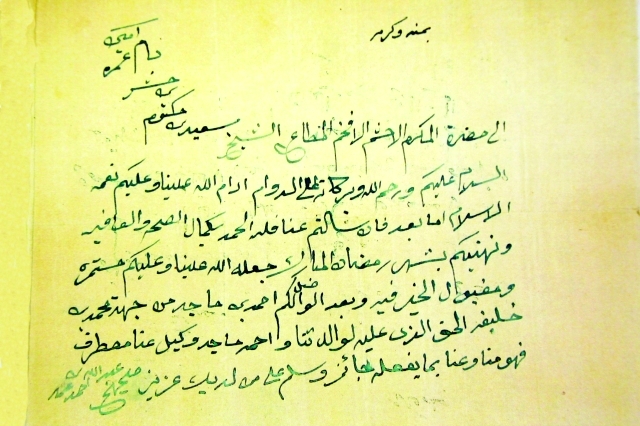 بمنه وكرمه
الى حضرة المكرم الاحشم الافخم المطاع الشيخ
سعيد بن مكتوم
بن حشر
دام عمره
امين
السلام عليكم ورحمة الله وبركاته على الدوام ادام الله علينا وعليكم نعمة
الاسلام اما بعد فان سالتم عنا فلله الحمد بكمال الصحة والعافيه
ونهنيكم بشهر رمضان المبارك جعله الله علينا وعليكم مستمره
ومقبول الخير فيه وبعد الواصل لكم احمد بن ماجد من جهة محمد بن
خليفه الحق الذى عليه لوالدتنا واحمد ماجد وكيل عنا مصطرف
فهو منا وعنا بما يفعله جائز وسلم على من لديك عزيز